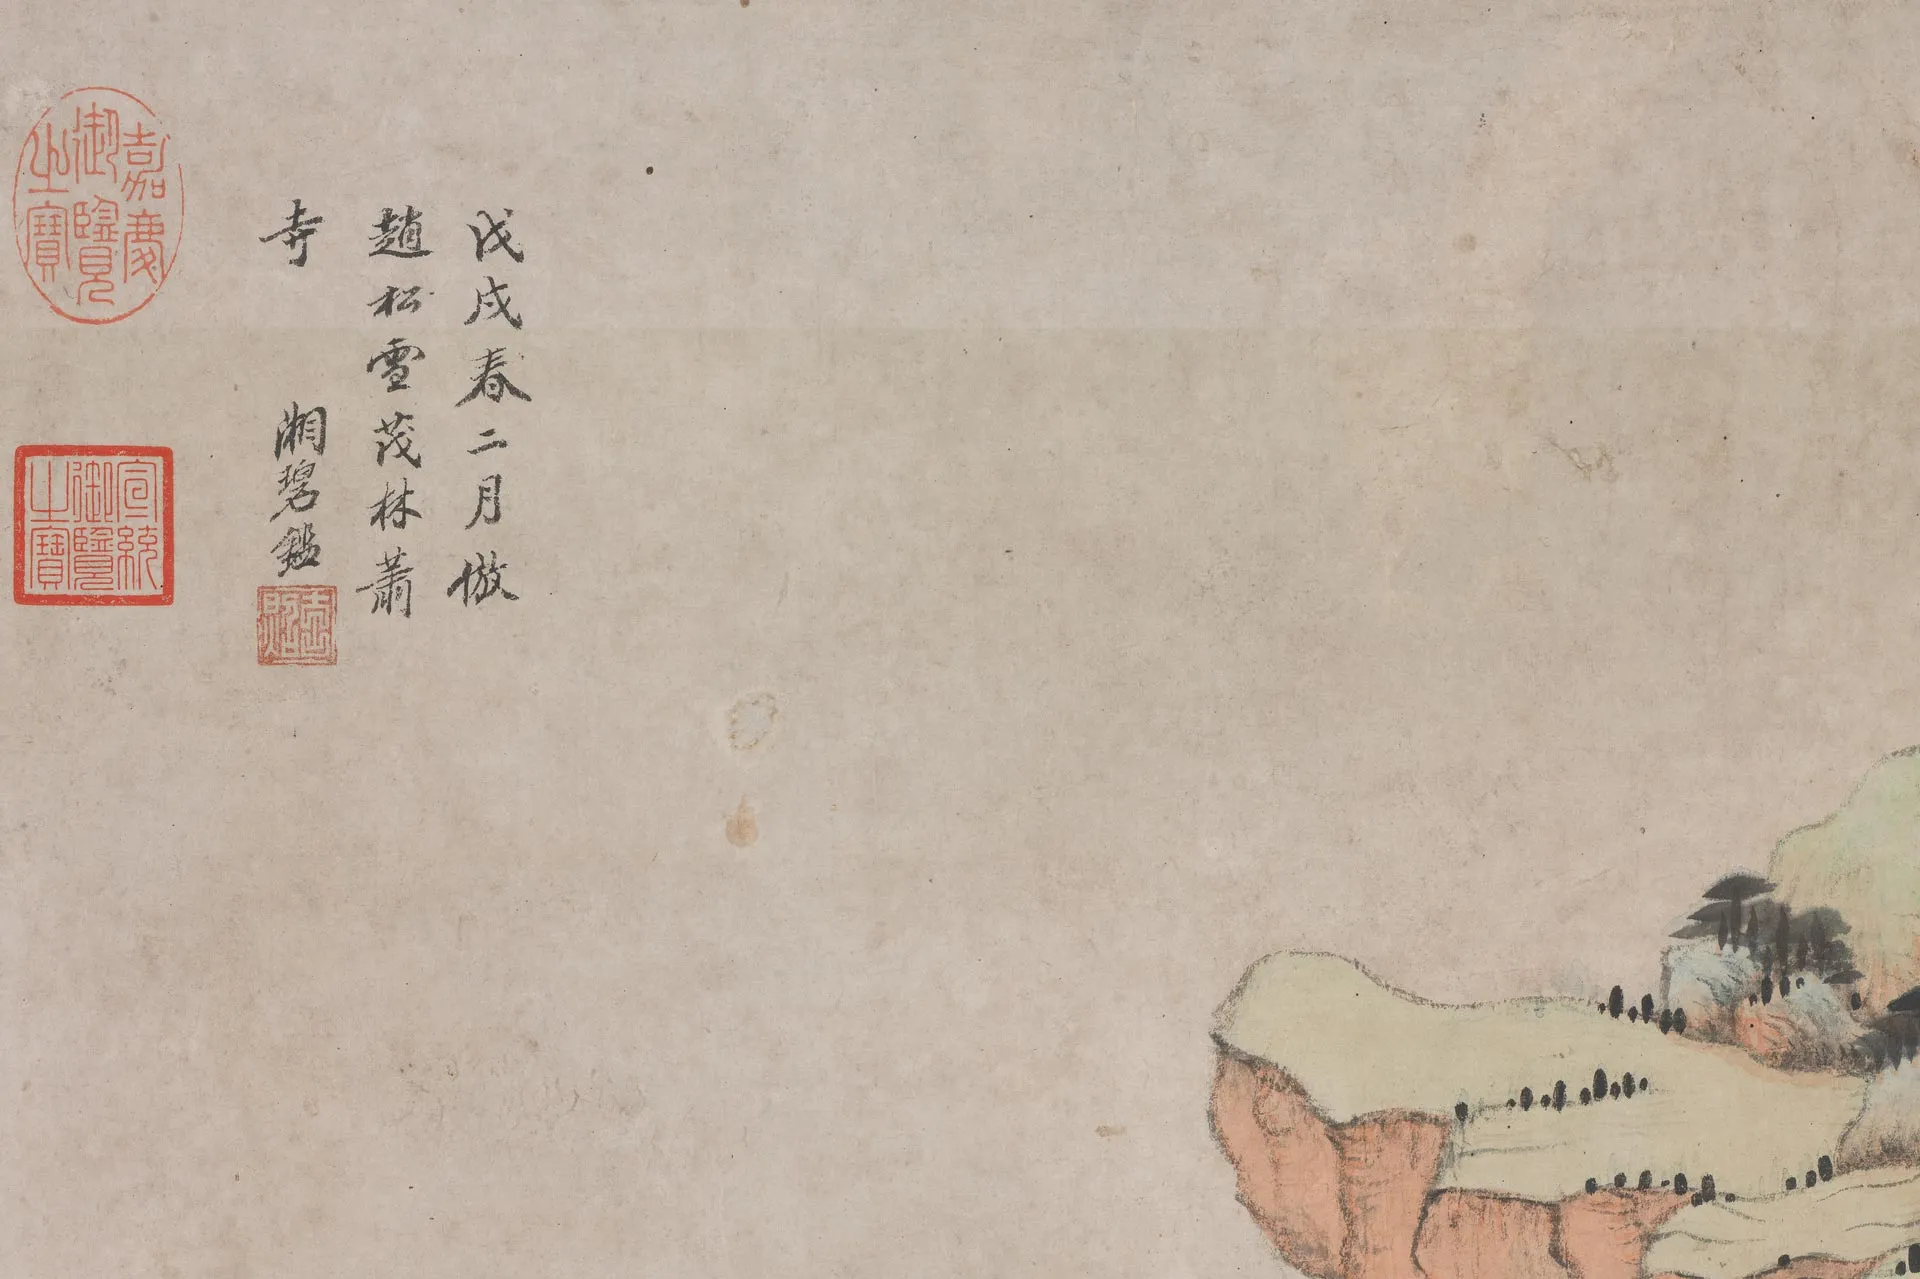 戊戌春二月倣
趙松雪茂林蕭
寺 湘碧鑑
嘉慶
御覽
之寶
宣統
御覽
之寶